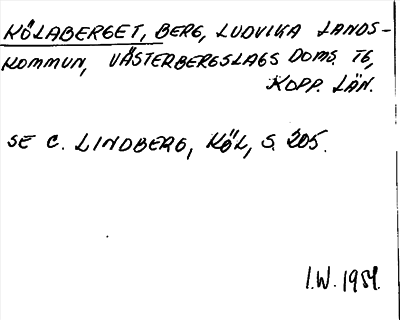 KÖLABERGET, BERG, LUDVIKA LANDS-
KOMMUN, VÄSTERBERGSLAGS DOMS. TG,
KOPP. LÄN.
SE C. LINDBERG, KÖL, S. 205.
I.W. 1954.